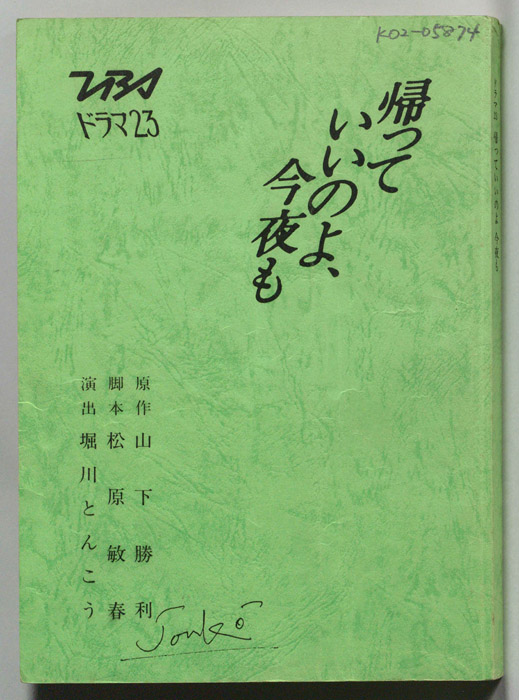 K02-05874
TBS
ドラマ23
帰って
いいのよ、
今夜も
原作 山下勝利
脚本 松原敏春
演出 堀川とんこう
Tonkō
ドラマ23 帰っていいのよ、今夜も